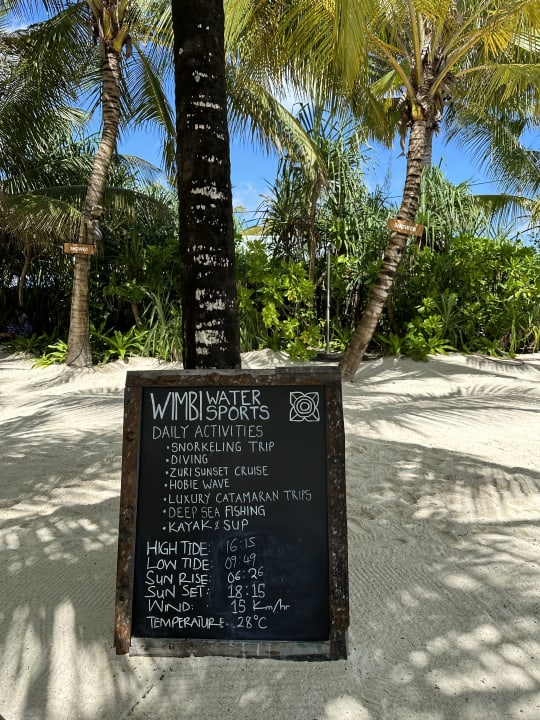 WIMBI WATER SPORTS
DAILY ACTIVITIES
• SNORKELING TRIP
• DIVING
• ZURI SUNSET CRUISE
• HOBIE WAVE
• LUXURY CATAMARAN TRIPS
• DEEP SEA FISHING
• KAYAK & SUP
HIGH TIDE: 16:15
LOW TIDE: 09:49
SUN RISE: 06:26
SUN SET: 18:15
WIND: 15 Km/hr
TEMPERATURE: 28°C